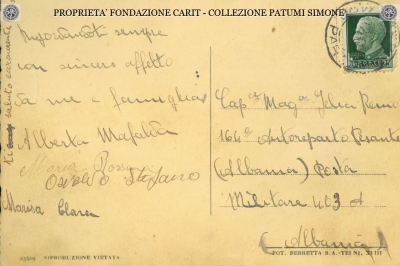 PROPRIETA' FONDAZIONE CARIT - COLLEZIONE PATUMI SIMONE
sempre
con sincero affetto
Da me e famiglia
Alberta Mafalda
Maria Rossana
Osvaldo Stefano
Marisa Clara
ti saluto caramente
Cap. Mag.
164° Autoreparto Pesante
(Albania) Posta
Militare 403 A
(Albania)
RIPRODUZIONE VIETATA
FOT. BERRETTA S.A. - TERNI, XVIII